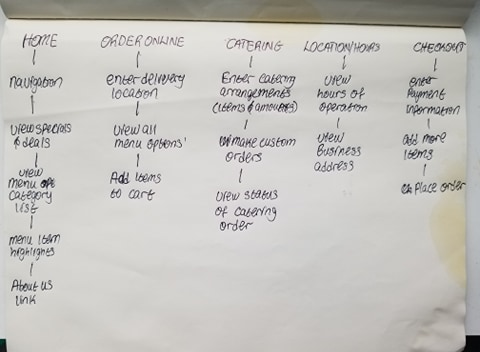 HOME
navigation
view specials
& deals
view
menu
category
list
menu item
highlights
About us
link
ORDER ONLINE
enter delivery
location
view all
menu options
Add items
to cart
CATERING
Enter catering
arrangements
(items & amounts)
make custom
orders
view status
of catering
order
LOCATION/HOURS
view
hours of
operation
view
business
address
CHECKOUT
enter
payment
information
add more
items
Place order